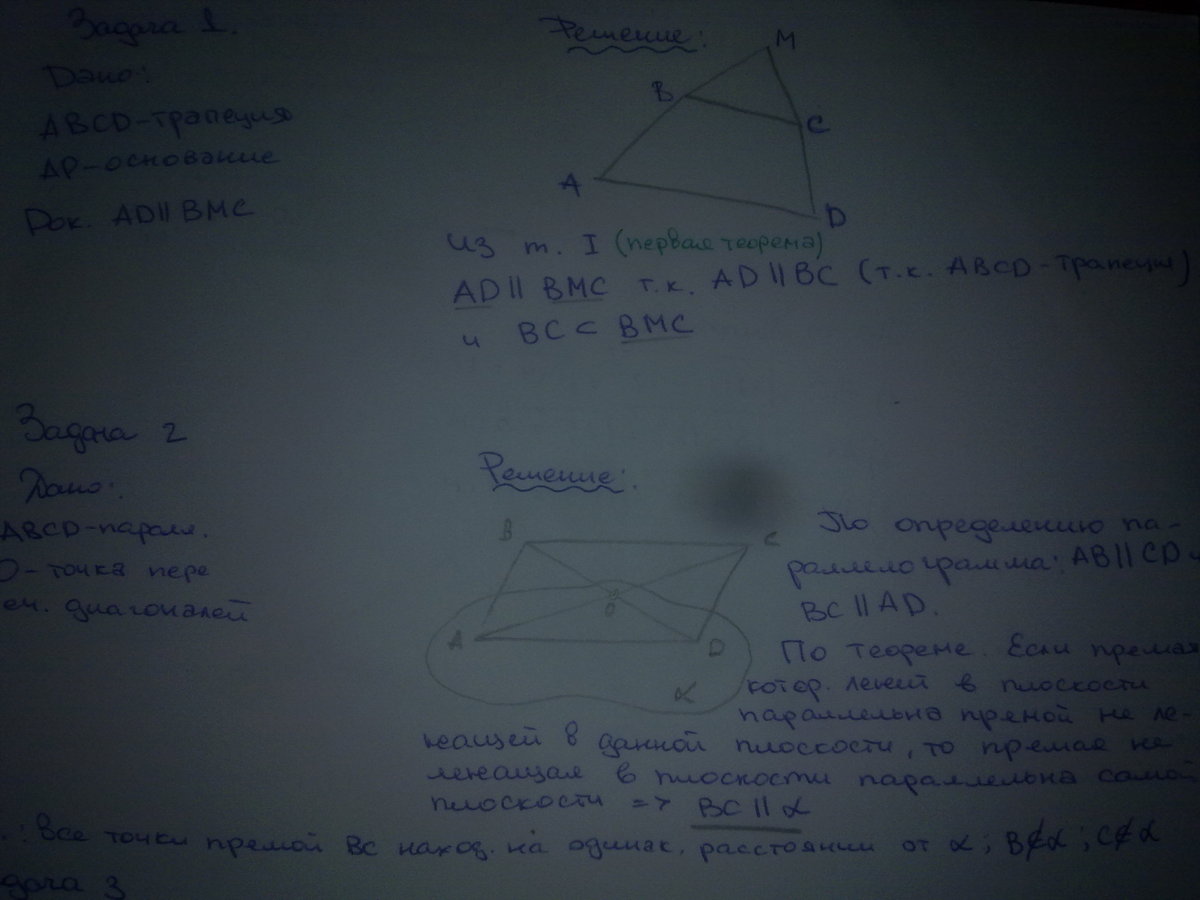 Задача 1.
Дано:
ABCD-трапеция
AD-основание
Док. AD∥BMC
Решение:
M
B
C
A
D
из т. I (первая теорема)
AD∥BMC т.к. AD∥BC (т.к. ABCD-трапеция)
и BC⊂BMC
Задача 2
Дано:
ABCD-паралл.
О-точка пере
еч. диагоналей
Решение:
B
C
O
A
D
α
По определению па-
раллелограмма: AB∥CD и
BC∥AD.
По теореме. Если прямая
котор. лежит в плоскости
параллельна прямой не ле-
жащей в данной плоскости, то прямая не
лежащая в плоскости параллельна самой
плоскости => BC∥α
.: все точки прямой BC наход. на одинак. расстоянии от α; B⊄α; C⊄α
дача 3